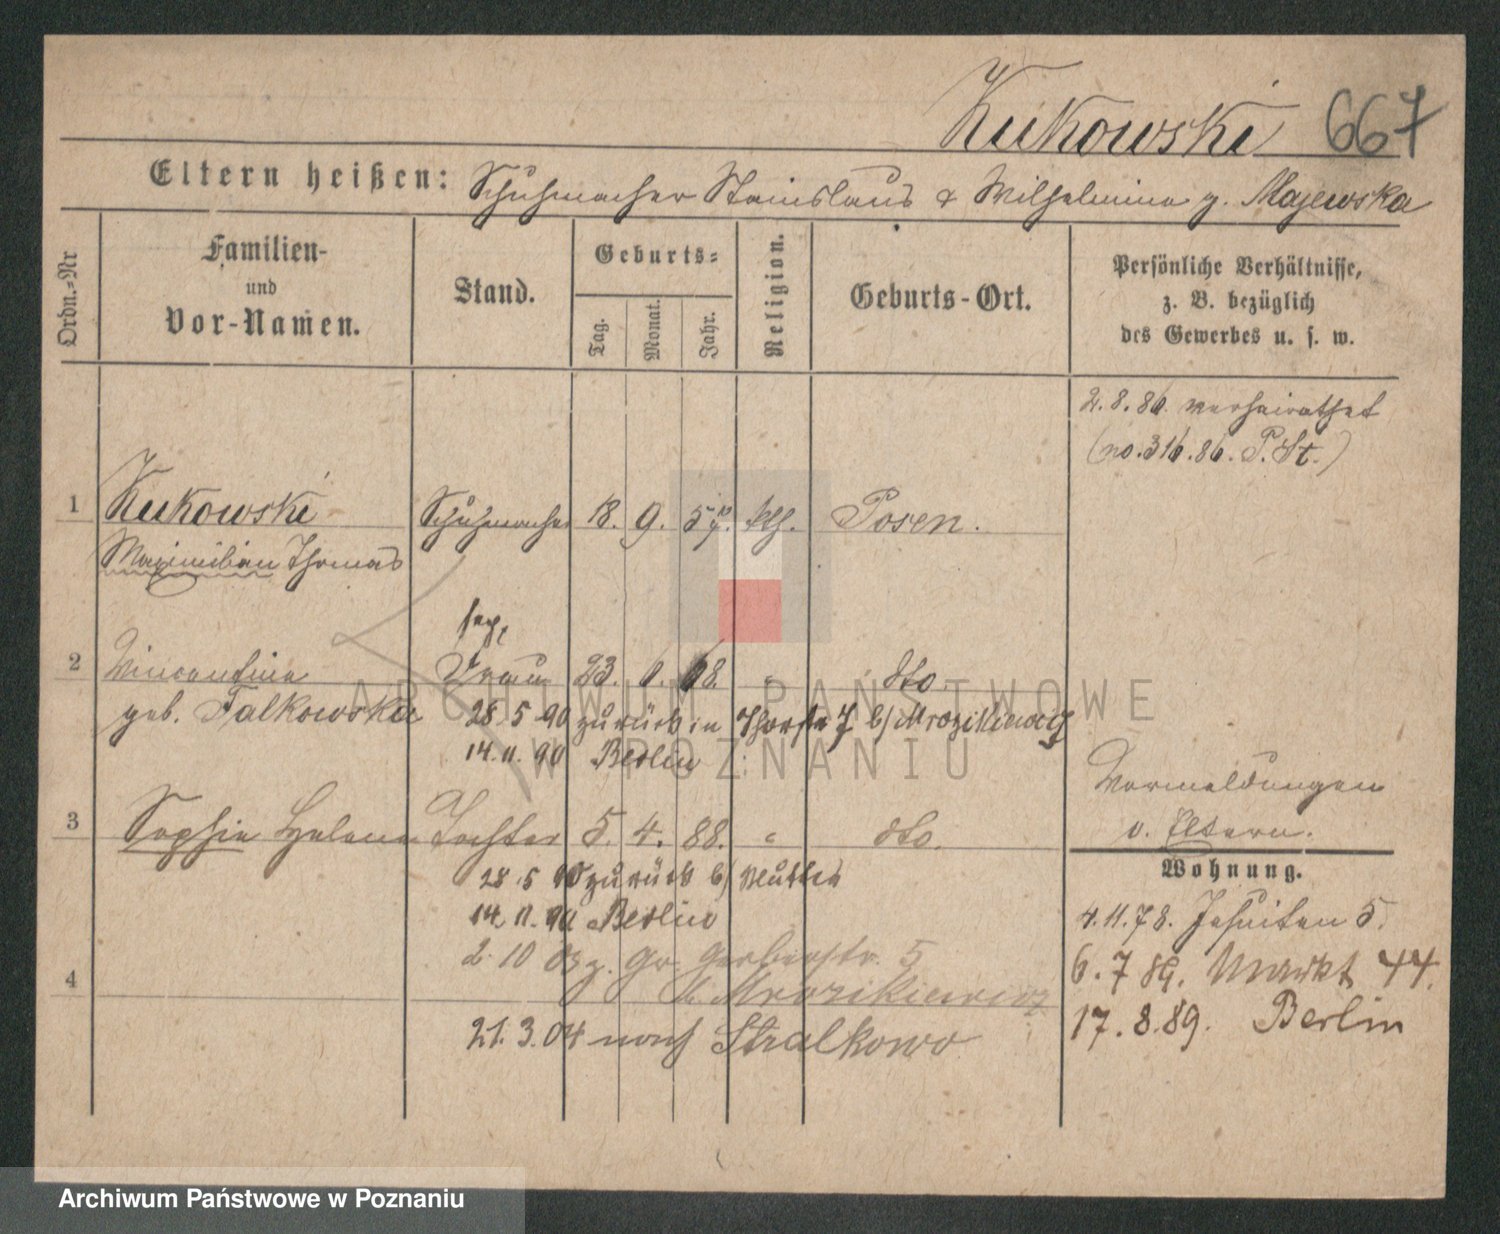 Kukowski 667
Eltern heißen: Schuhmacher Stanislaus & Wilhelmina g. Majewska
Ordn.=Nr
Familien-
und
Vor-Namen.
Stand.
Geburts=
Tag.
Monat.
Jahr.
Religion.
Geburts-Ort.
Persönliche Verhältnisse,
z. B. bezüglich
des Gewerbes u. s. w.
2. 8. 86. verheirathet
(no. 316. 86. P. St.)
1 Kukowski Schuhmacher 18. 9. 57. kth. Posen.
Maximilian Thomas
2 Vincentina Frau 23. 1. 68. " dto.
geb. Falkowska 28. 5 90 zurück in b/ Mrozikiewicz
14. 11. 90 Berlin
3 Sophie Helena Tochter 5. 4. 88. " dto.
28. 5 90 zurück b/ Mutter
14. 11. 90 Berlin
2. 10 03 z. Gr. Gerberstr. 5
b. Mrozikiewicz
4
21. 3. 04 nach Stralkowo
Vermeldungen
v. Eltern.
Wohnung.
4. 11. 78. Jesuiten 5.
6. 7 89. Markt 44.
17. 8. 89. Berlin
ARCHIWUM PAŃSTWOWE
W POZNANIU
Archiwum Państwowe w Poznaniu